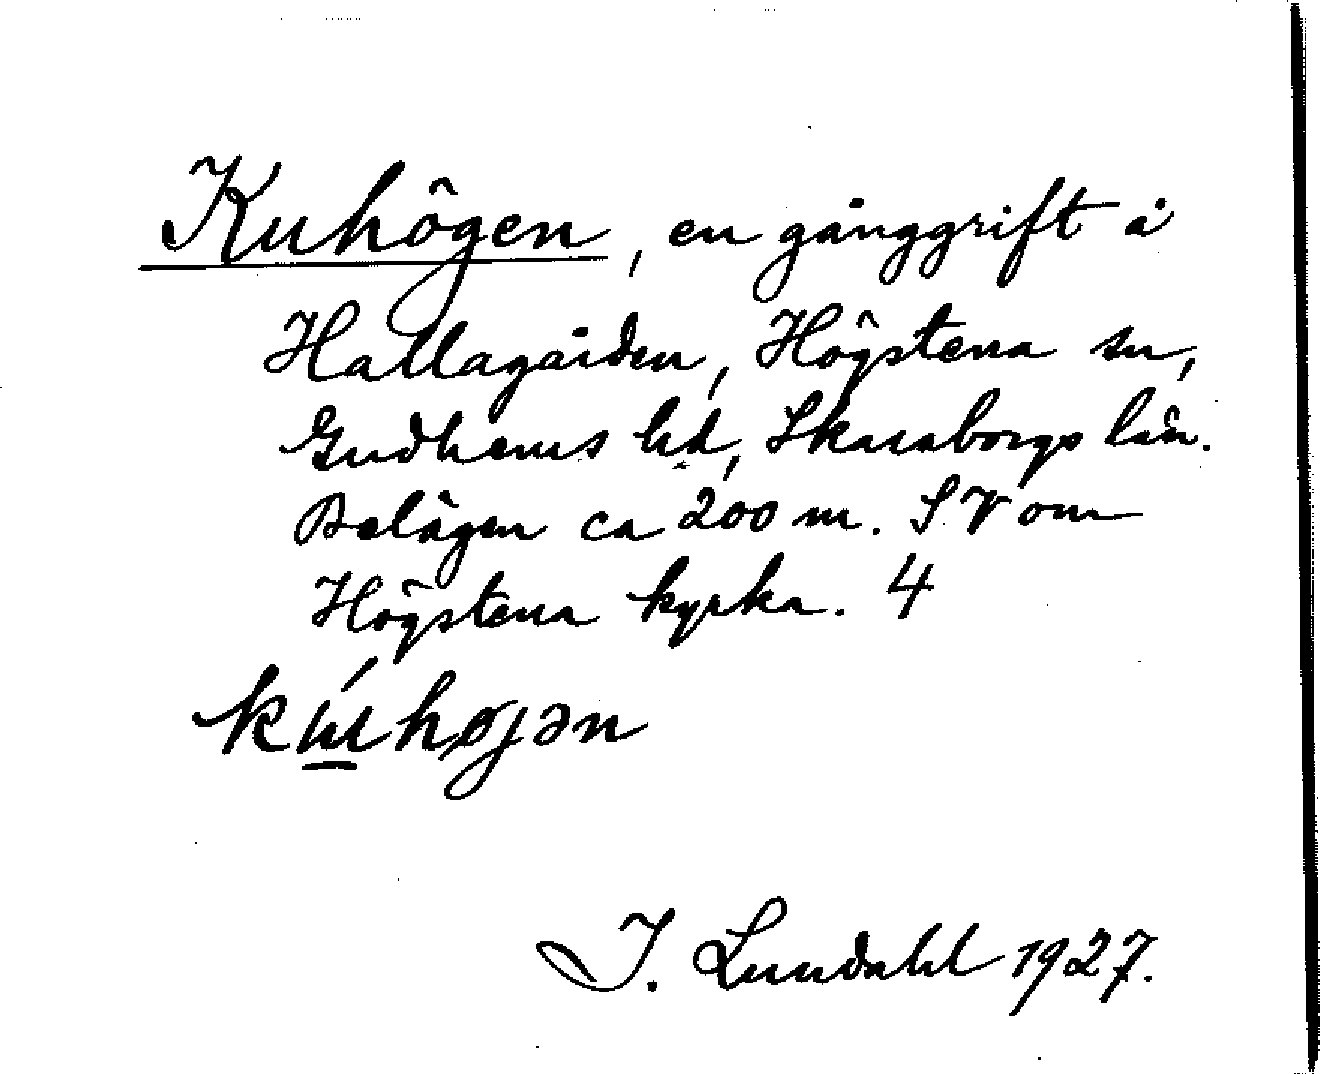 Kuhögen, en gånggrift å
Hallagården, Högstena sn,
Gudhems hd, Skaraborgs län.
Belägen ca 200 m. SV om
Högstena kyrka. 4
kúuhøjən
I. Lundahl 1927.